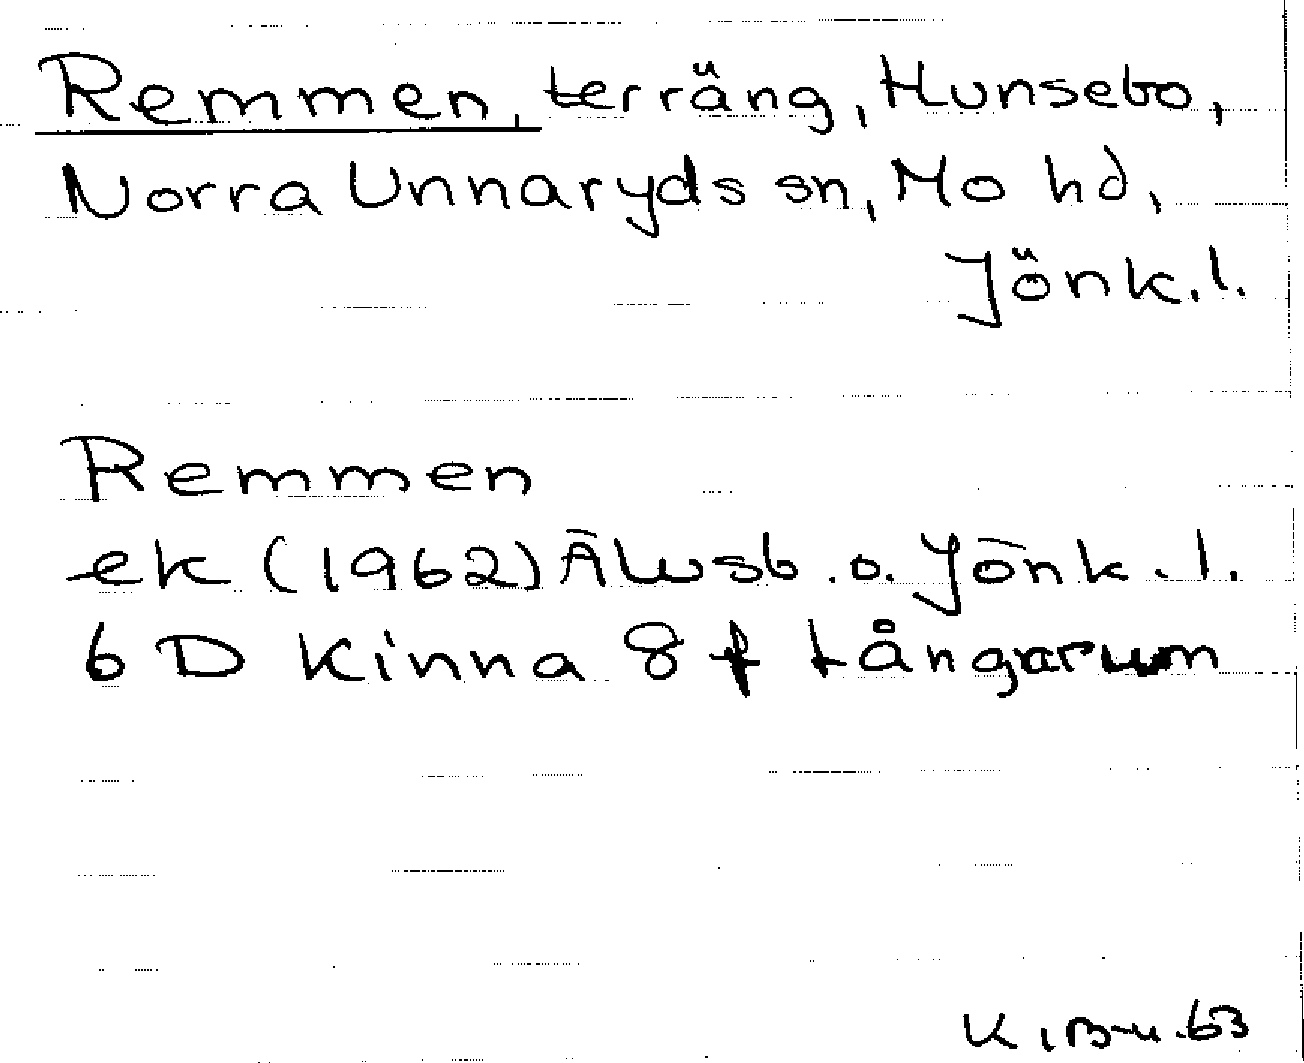 Remmen, terräng, Hunsebo,
Norra Unnaryds sn, Mo hd,
Jönk.l.
Remmen
ek (1962) Älvsb. o. Jönk.l.
6 D Kinna 8 f Långarum
63